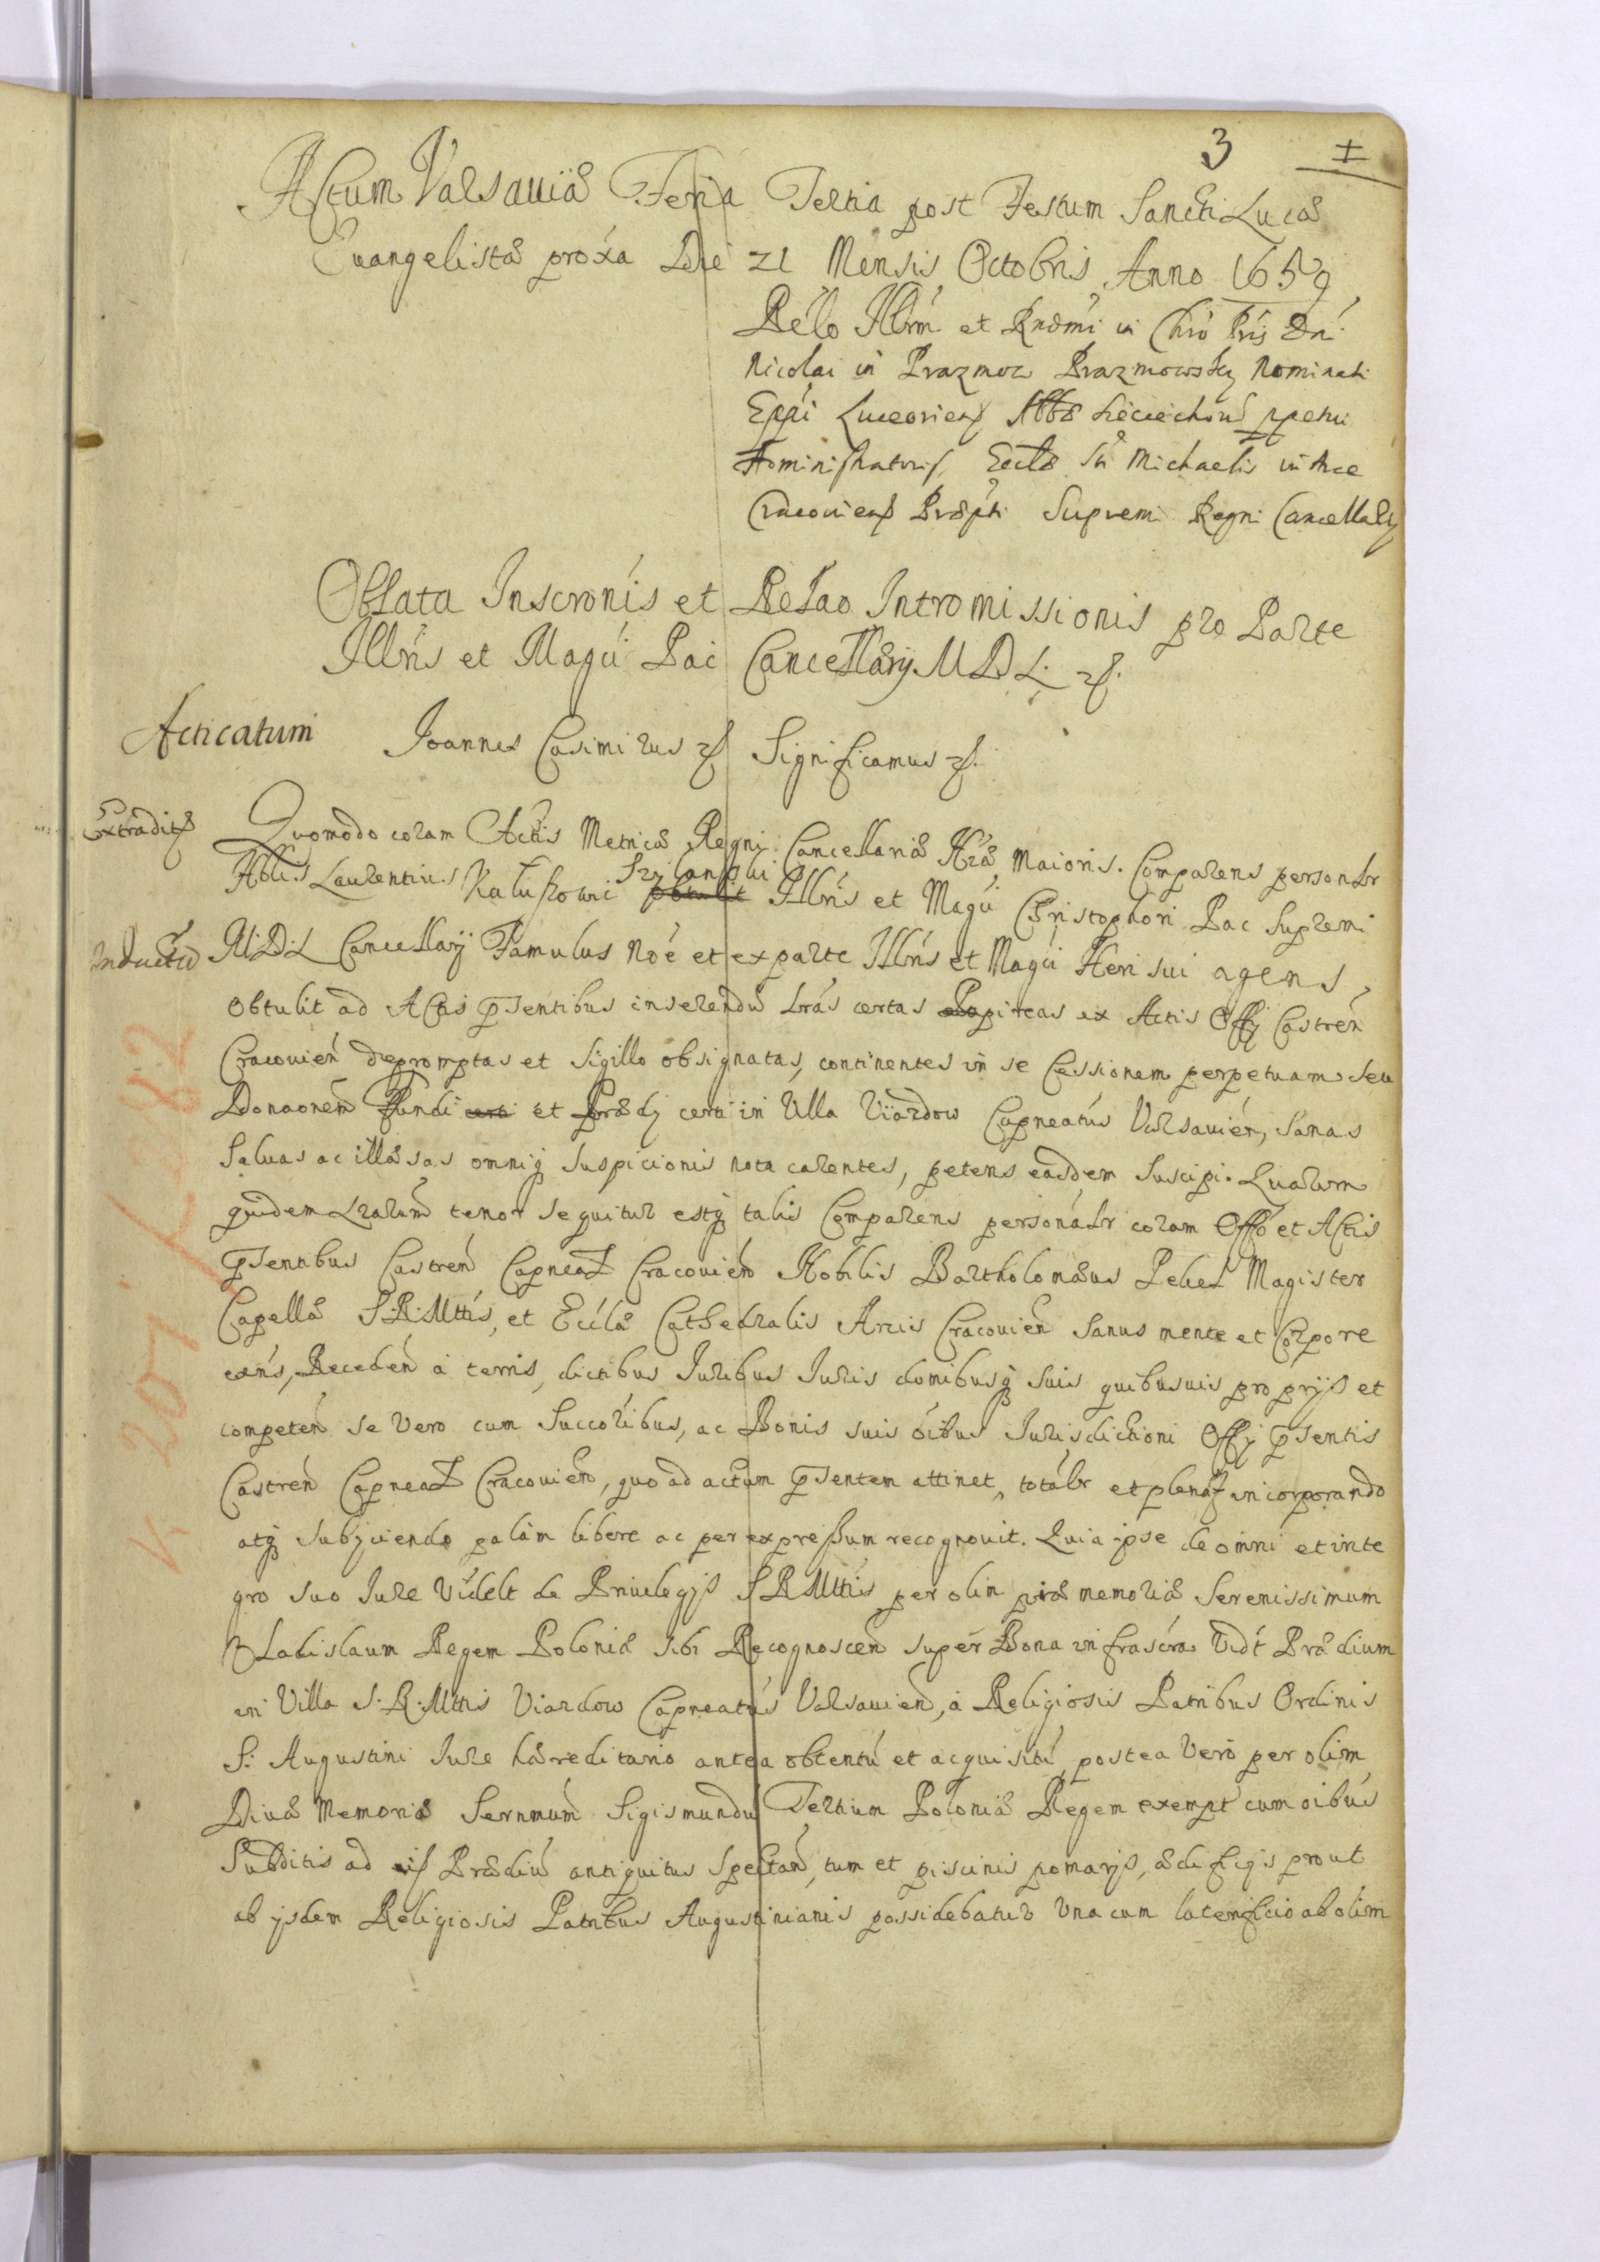 3 I
Actum Varsaviæ Feria Tertia post Festum Sancti Lucæ
Evangelistæ proxa Die 21 Mensis Octobris Anno 1659
Rélo Illrm et Rndmi in Chro Pris Dni
Nicolai in Prazmow Prazmowsky Nominati
Eppi Luceorien Abbæ Sieciechow ppetui
Administratoris, Eccle Sti Michaelis in Arce
Cracovien Præpti Supremi Regni Cancellarij
Oblata Inscronis et Relao Intromissionis pro Parte
Illris et Magci Pac Cancellarij M D L
Acticatum Joannes Casimirus Significamus
Extradit Quomodo coram Actis Metricæ Regni Cancellariæ Nræ Maioris. Comparens personlr
Szylanski
Nblis Laurentius Illris et Magci Christophori Pac Supremi
Inductu M D L Cancellarij Famulus Noé et ex parte Illris et Magci Heri sui agens,
obtulit ad Acta psentibus inserendu Lras certas Papireas ex Actis Offij Castren
Cracovien depromptas et sigillo obsignatas, continentes in se Cessionem perpetuam seu
Donaonem Fundi et Prædij certi in Villa Viazdow Capneatus Varsavien, sanas
salvas ac illæsas omniq suspicionis nota carentes, petens easdem suscipi. Quarum
quidem Lrarum tenor sequitur estq talis Comparens personalr coram Offo et Actis
psentibus Castren Capneat Cracovien Nobilis Bartholomæus Pekel Magister
Capellæ S.R.Mttis, et Eccla Cathedralis Arcis Cracovien sanus mente et Corpore
exns, Receden a terris, dictibus Juribus Juris domibusq suis quibusvis proprijs et
competen se vero cum Succoribus, ac Bonis suis oibus Jurisdictioni Offij psentis
Castren Capneat Cracovien, quo ad actum psentem attinet, totalr et plena incorporando
atq subijciendo palam libere ac per expressum recognovit. Quia ipse de omni et inte
gro suo Jure Videlt de Privilegijs S R Mttis per olim piæ memoriæ Serenissimum
Vladislaum Regem Poloniæ sibi Recognoscen super Bona infrascra Vidt Prædium
in Villa S.R.Mttis Viazdow Capneatus Varsavien, a Religiosis Patribus Ordinis
S. Augustini Jure hæreditario antea obtentu et acquisitu, postea Vero per olim
Divæ Memoriæ Sernmum Sigismundu Tertium Poloniæ Regem exempt cum oibus
Subditis ad id Prædiu antiquitus spectan, tum et piscinis pomarijs, ædificijs prout
ab ijsdem Religiosis Patribus Augustinianis possidebatur Una cum laterificio ab olim